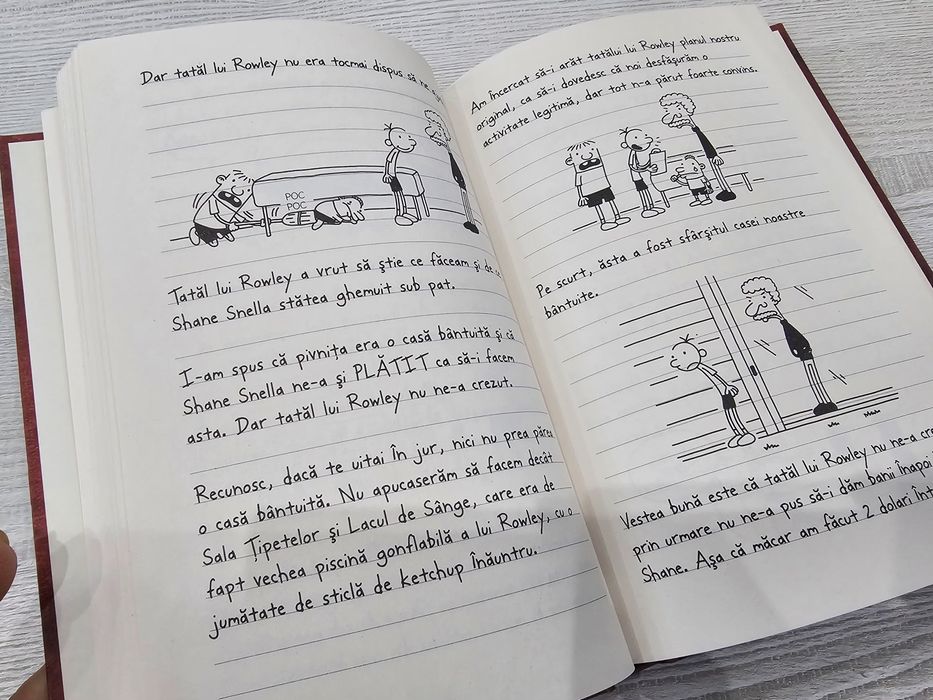 Dar tatăl lui Rowley nu era tocmai dispus să ne
POC
POC
Tatăl lui Rowley a vrut să știe ce făceam și de ce
Shane Snella stătea ghemuit sub pat.
I-am spus că pivnița era o casă bântuită și că
Shane Snella ne-a și PLĂTIT ca să-i facem
asta. Dar tatăl lui Rowley nu ne-a crezut.
Recunosc, dacă te uitai în jur, nici nu prea părea
o casă bântuită. Nu apucaserăm să facem decât
Sala Țipetelor și Lacul de Sânge, care era de
fapt vechea piscină gonflabilă a lui Rowley, cu o
jumătate de sticlă de ketchup înăuntru.
Am încercat să-i arăt tatălui lui Rowley planul nostru
original, ca să-i dovedesc că noi desfășurăm o
activitate legitimă, dar tot n-a părut foarte convins.
Pe scurt, ăsta a fost sfârșitul casei noastre
bântuite.
Vestea bună este că tatăl lui Rowley nu ne-a
prin urmare nu ne-a pus să-i dăm banii înapoi
Shane. Așa că măcar am făcut 2 dolari